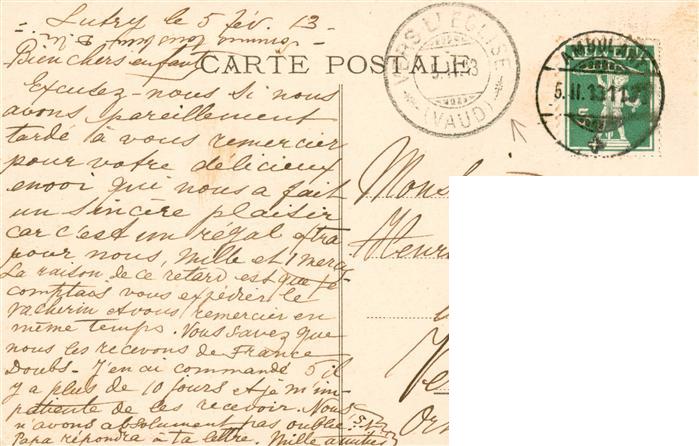 Lutry le 5 fév. 13 -
Bien chers enfants
CARTE POSTALE
VERS L'EGLISE
5.II.13
(VAUD)
AMBULANT
5.II.13 11
HELVETIA
5
Excusez-nous si nous
avons pareillement
tardé à vous remercier
pour votre délicieux
envoi qui nous a fait
un sincère plaisir
car c'est un régal extra
pour nous, Mille et 1 merci
La raison de ce retard est que je
comptais vous expédier le
vacherin et vous remercier en
même temps. Vous savez que
nous les recevons de France
Doubs - J'en ai commandé 5 il
y a plus de 10 jours et je m'im-
patiente de les recevoir. Nous
n'avons absolument pas oublié
Papa répondra à ta lettre. Mille amitiés
Monsi
Henri
Ve
Orm